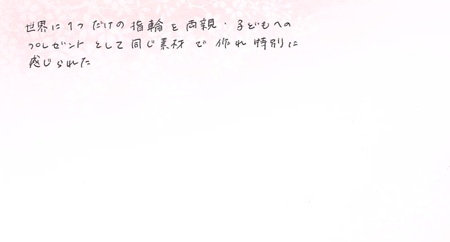 世界に1つだけの指輪を両親・子どもへの
プレゼントとして同じ素材で作れ特別に
感じられた